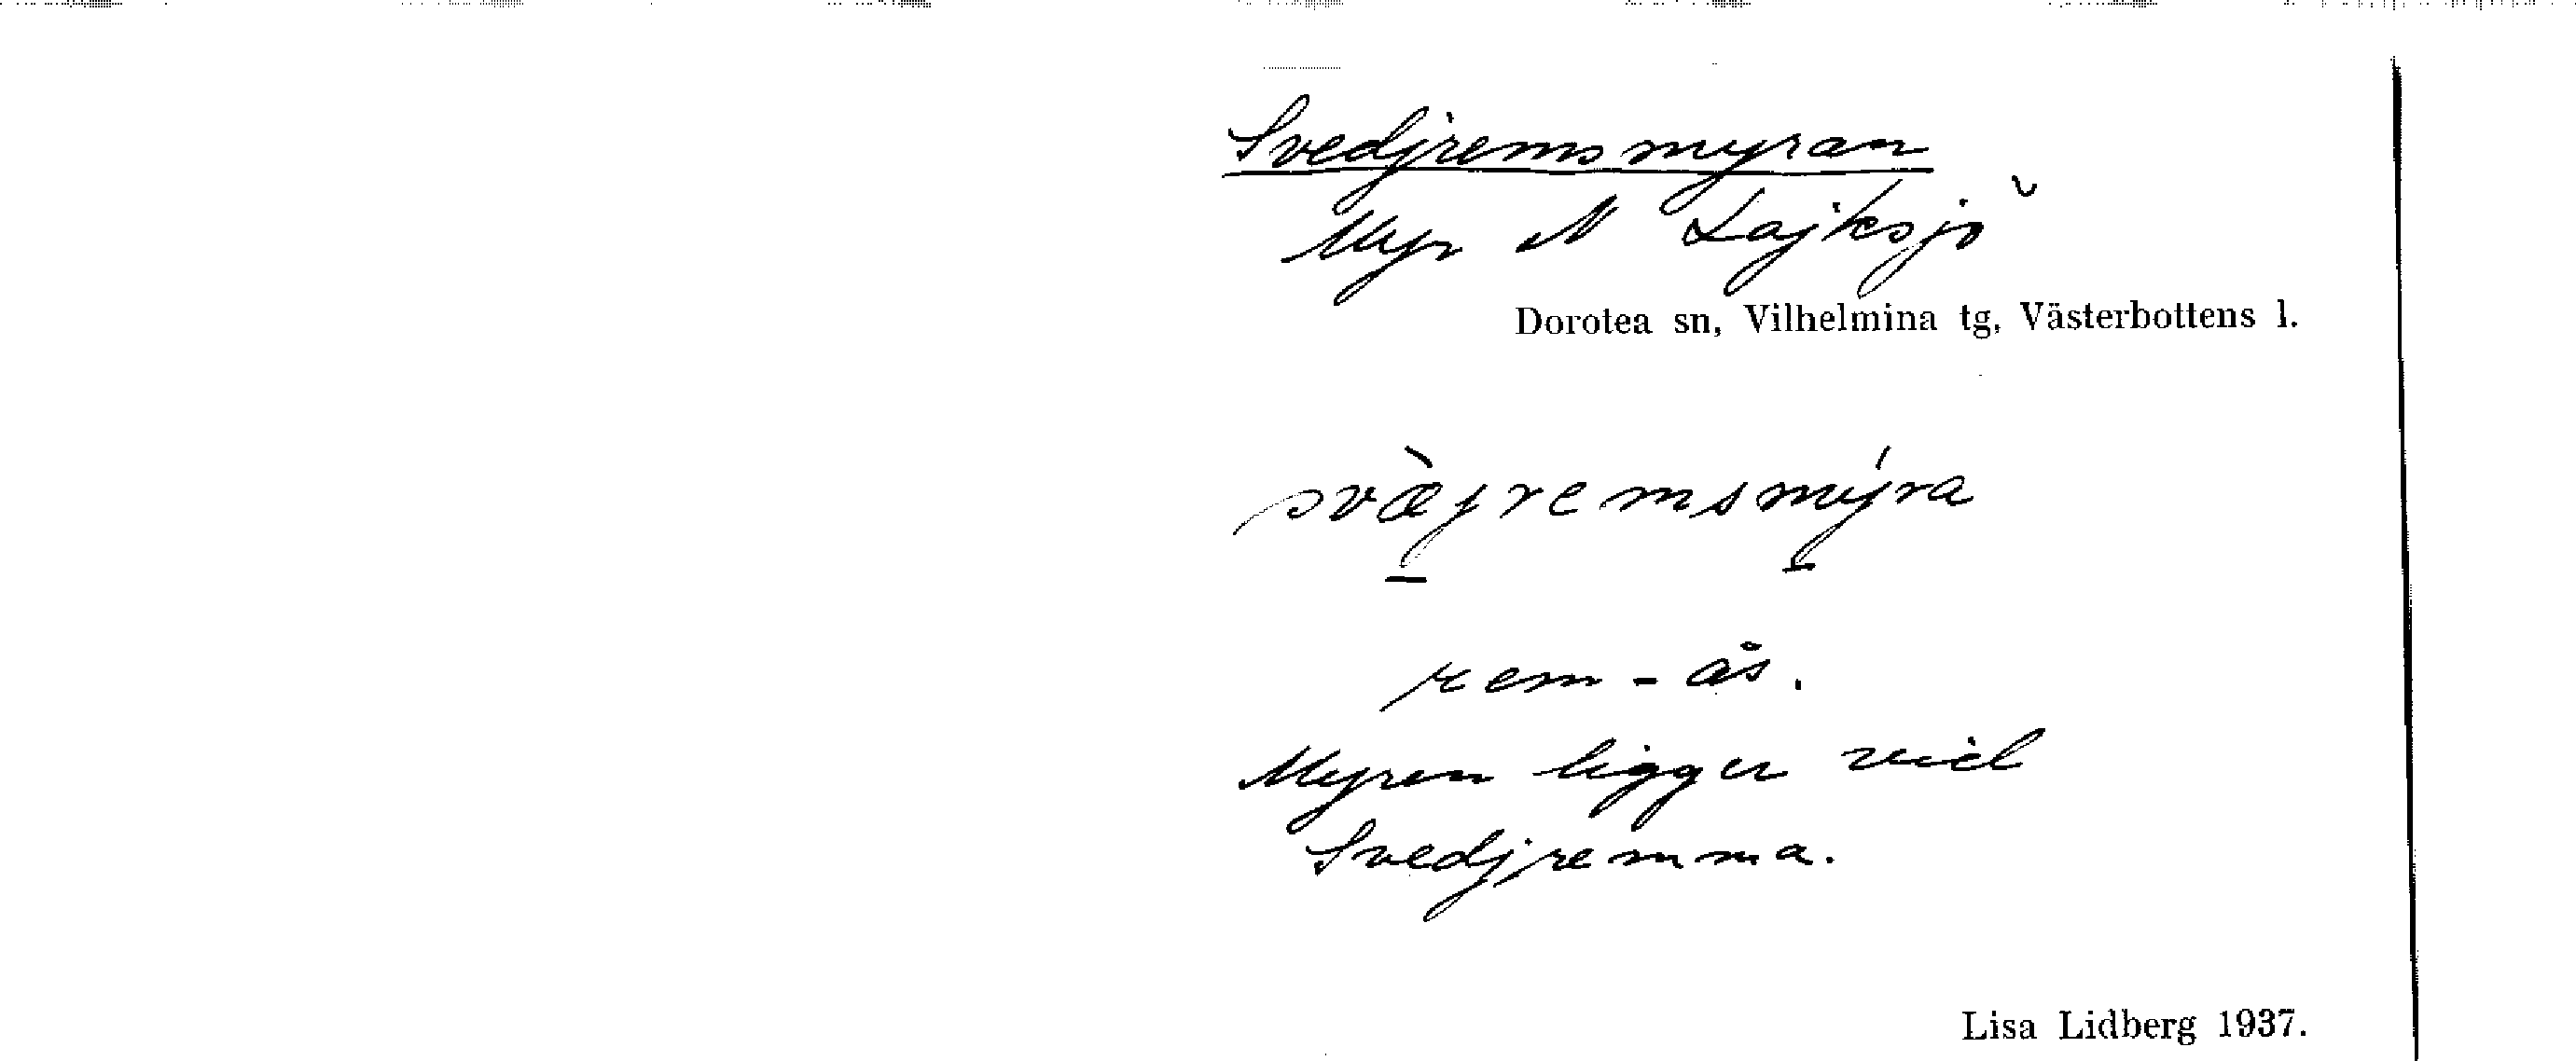 Svedjremsmyran
Myr N Lajksjö
Dorotea sn, Vilhelmina tg, Västerbottens l.
svæ̀jremsmýra
rem - ås.
Myren ligger vid
Svedjremma.
Lisa Lidberg 1937.